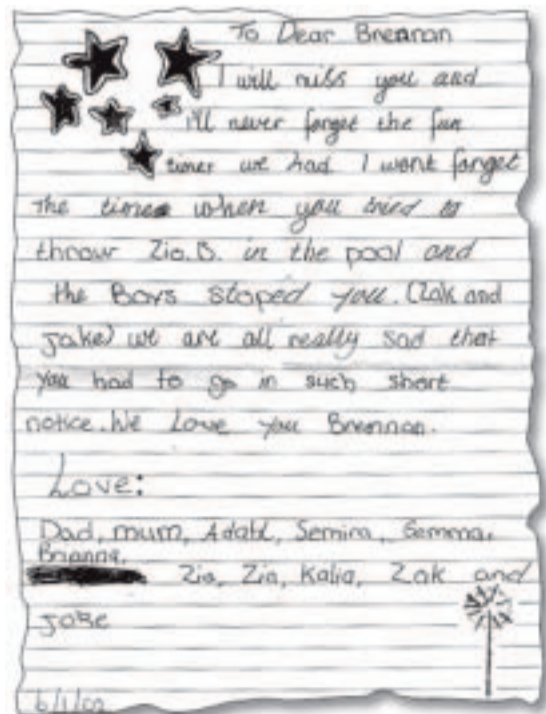 To Dear Brennan
I will miss you and
I'll never forget the fun
times we had. I wont forget
the times when you tried to
throw Zia.B. in the pool and
the Boys stoped you. (Zak and
Jake) we are all really sad that
you had to go in such short
notice. We Love you Brennan.
Love:
Dad, mum, Semira, Gemma,
Brianna,
Zia, Zia, Kalia, Zak and
Jake